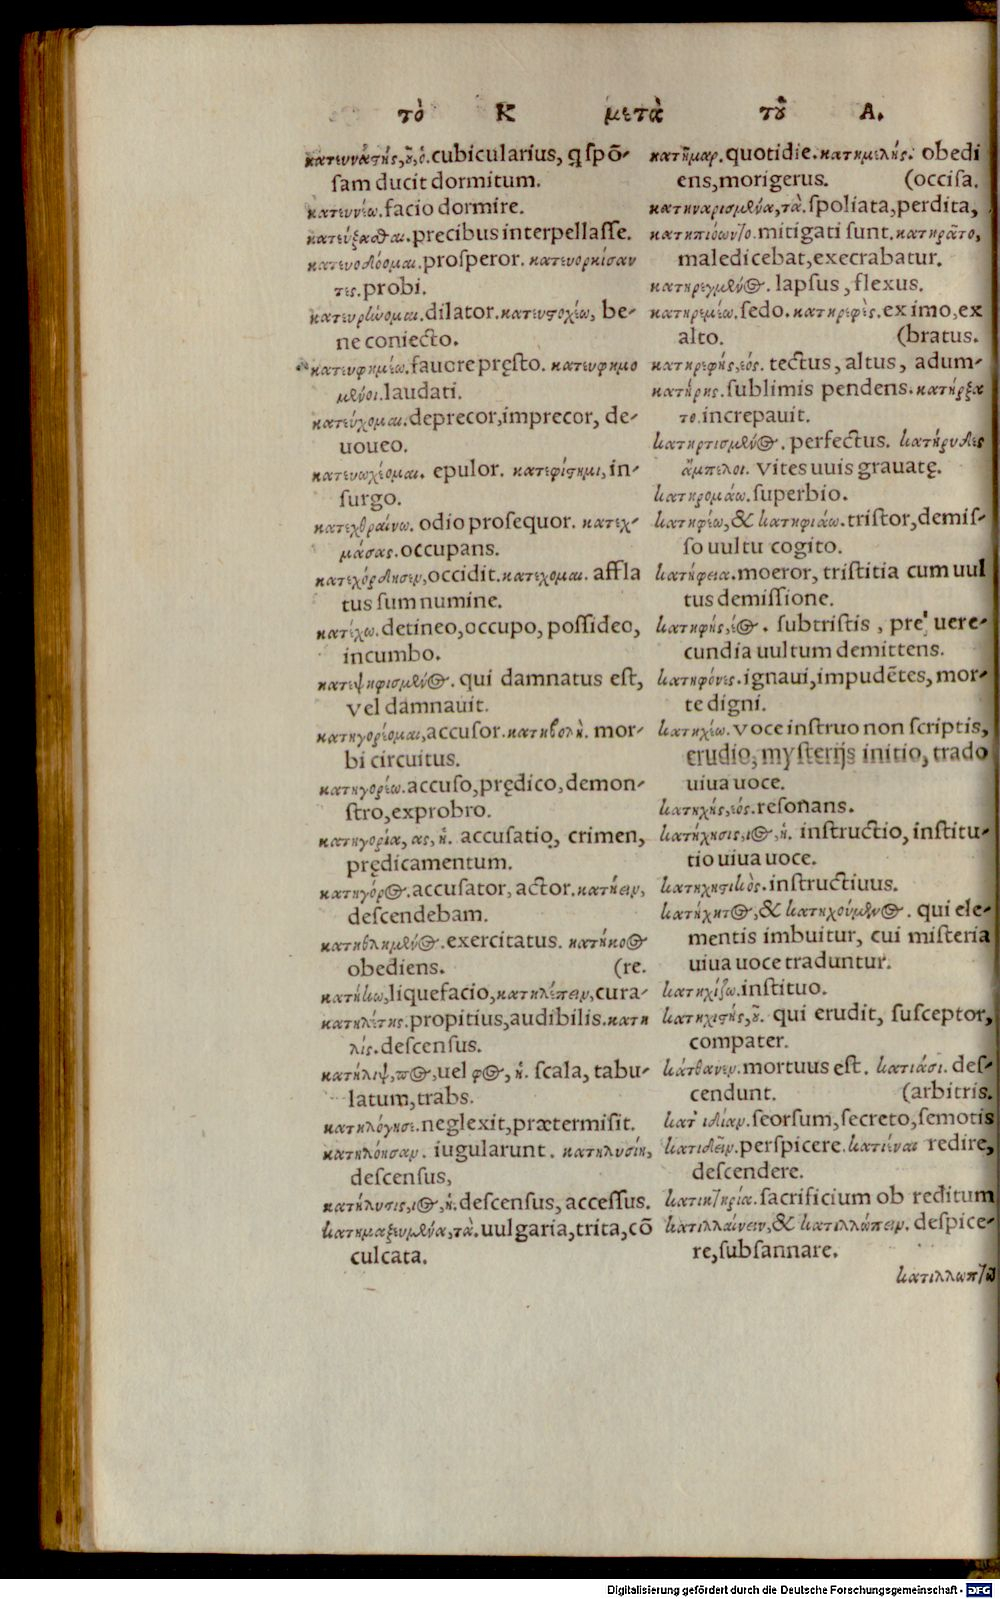 τὸ Κ μετὰ τοῦ Α.
κατευνάστης,ου,ὁ. cubicularius, q spõ-
sam ducit dormitum.
κατευνάω. facio dormire.
κατεύξασθαι. precibus interpellasse.
κατευοδόομαι. prosperor. κατευορκήσαν
τες. probi.
κατευρύνομαι. dilator. κατευστοχέω, be-
ne coniecto.
κατευφημέω. fauore pręsto. κατευφημο
μένοι. laudati.
κατεύχομαι. deprecor, imprecor, de-
uoueo.
κατευωχέομαι. epulor. κατεφίστημι, in-
surgo.
κατεχθραίνω. odio prosequor. κατεχ-
μάσας. occupans.
κατεχόρδησεν, occidit. κατέχομαι. affla
tus sum numine.
κατέχω. detineo, occupo, possideo,
incumbo.
κατεψηφισμένος. qui damnatus est,
vel damnauit.
κατηγορέομαι, accusor. κατηβολή. mor-
bi circuitus.
κατηγορέω. accuso, prędico, demon-
stro, exprobro.
κατηγορία, ας, ἡ. accusatio, crimen,
prędicamentum.
κατηγόρος. accusator, actor. κατήειν,
descendebam.
κατηθλημένος. exercitatus. κατήκοος
obediens. (re.
κατήκω, liquefacio, κατηλέπειν, cura-
κατηλέτης. propitius, audibilis. κατη
λίς. descensus.
κατῆλιψ, πος, uel φος, ἡ. scala, tabu-
latum, trabs.
κατηλόγησε. neglexit, prætermisit.
κατηλόησαν. iugularunt. κατηλυσίη,
descensus,
κατήλυσις, ιος, ἡ. descensus, accessus.
κατημαξευμένα, τὰ. uulgaria, trita, cõ
culcata.
κατῆμαρ. quotidie. κατημελής. obedi
ens, morigerus. (occisa.
κατηναρισμένα, τὰ. spoliata, perdita,
κατηπιόωντο. mitigati sunt. κατηρᾶτο,
maledicebat, execrabatur.
κατηρεγμένος. lapsus, flexus.
κατηρεμέω. sedo. κατηρεφὲς. eximo, ex
alto. (bratus.
κατηρεφής, έος. tectus, altus, adum-
κατήρης. sublimis pendens. κατήρξα
το. increpauit.
κατηρτισμένος. perfectus. κατήρυδες
ἄμπελοι. vites uuis grauatę.
κατηρομάω. superbio.
κατηφέω, & κατηφιάω. tristor, demis-
so uultu cogito.
κατήφεια. moeror, tristitia cum uul
tus demissione.
κατηφής, έος. subtristis, pre uere-
cundia uultum demittens.
κατηφόνες. ignaui, impudẽtes, mor-
te digni.
κατηχέω. voce instruo non scriptis,
erudio, mysterijs initio, trado
uiua uoce.
κατηχής, έος. resonans.
κατήχησις, ιος, ἡ. instructio, institu-
tio uiua uoce.
κατηχητικὸς. instructiuus.
κατήχητος, & κατηχούμενος. qui ele-
mentis imbuitur, cui misteria
uiua uoce traduntur.
κατηχίζω. instituo.
κατηχιστής, οῦ. qui erudit, susceptor,
compater.
κάτθανεν. mortuus est. κατιάσι. des-
cendunt. (arbitris.
κατ' ιδίαν. seorsum, secreto, semotis
κατιδεῖν. perspicere. κατιέναι redire,
descendere.
κατιητηρία. sacrificium ob reditum
κατιλλαίνειν, & κατιλλώπειν. despice-
re, subsannare.
κατιλλωπτῶ
Digitalisierung gefördert durch die Deutsche Forschungsgemeinschaft - DFG